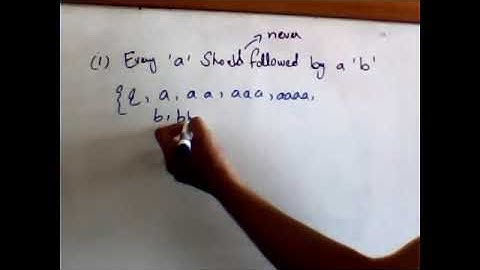 never
(1) Every 'a' Should followed by a 'b'
{ε, a, aa, aaa, aaaa,
b, bb